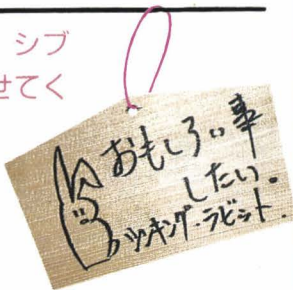 シブ
せてく
おもしろい事
したい。
ハッキング・ラビット.